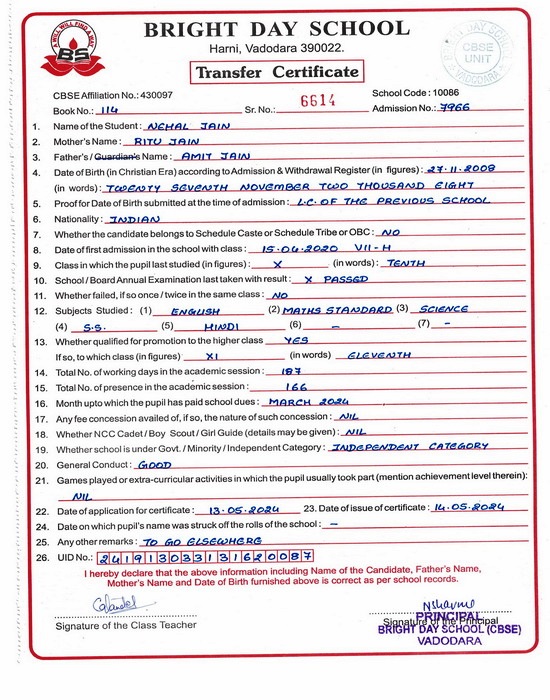 A WILL WILL FIND A WAY
BS
BRIGHT DAY SCHOOL
Harni, Vadodara 390022.
BRIGHT DAY SCHOOL
CBSE
UNIT
VADODARA
Transfer Certificate
CBSE Affiliation No.: 430097
School Code : 10086
Book No.: 114 Sr. No.: 6614 Admission No.: 7966
1. Name of the Student : NEHAL JAIN
2. Mother's Name : RITU JAIN
3. Father's / Guardian's Name : AMIT JAIN
4. Date of Birth (in Christian Era) according to Admission & Withdrawal Register (in figures) : 27.11.2008
(in words) : TWENTY SEVENTH NOVEMBER TWO THOUSAND EIGHT
5. Proof for Date of Birth submitted at the time of admission : L.C. OF THE PREVIOUS SCHOOL
6. Nationality : INDIAN
7. Whether the candidate belongs to Schedule Caste or Schedule Tribe or OBC : NO
8. Date of first admission in the school with class : 15.04.2020 VII-H
9. Class in which the pupil last studied (in figures) : X (in words) : TENTH
10. School / Board Annual Examination last taken with result : X PASSED
11. Whether failed, if so once / twice in the same class : NO
12. Subjects Studied : (1) ENGLISH (2) MATHS STANDARD (3) SCIENCE
(4) S.S. (5) HINDI (6) – (7) –
13. Whether qualified for promotion to the higher class YES
If so, to which class (in figures) XI (in words) ELEVENTH
14. Total No. of working days in the academic session : 187
15. Total No. of presence in the academic session : 166
16. Month upto which the pupil has paid school dues : MARCH 2024
17. Any fee concession availed of, if so, the nature of such concession : NIL
18. Whether NCC Cadet / Boy Scout / Girl Guide (details may be given) : NIL
19. Whether school is under Govt. / Minority / Independent Category : INDEPENDENT CATEGORY
20. General Conduct : GOOD
21. Games played or extra-curricular activities in which the pupil usually took part (mention achievement level therein):
NIL
22. Date of application for certificate : 13.05.2024 23. Date of issue of certificate : 14.05.2024
24. Date on which pupil's name was struck off the rolls of the school : –
25. Any other remarks : TO GO ELSEWHERE
26. UID No.: 241913033131620087
I hereby declare that the above information including Name of the Candidate, Father's Name,
Mother's Name and Date of Birth furnished above is correct as per school records.
Signature of the Class Teacher
Signature of the Principal
PRINCIPAL
BRIGHT DAY SCHOOL (CBSE)
VADODARA